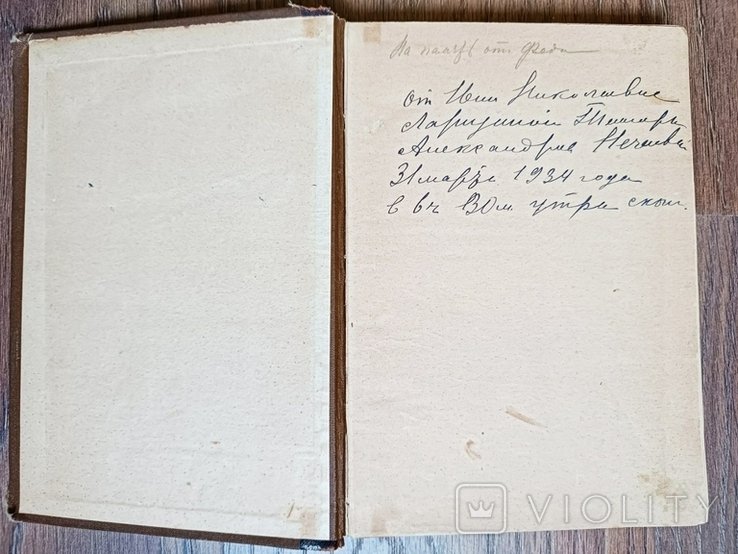 На память от Феди
от Нин Николаевне
Ларицкой Тамары
Александра Нечаева
31 марта 1934 года
в 6ч 30м утра скон.
VIOLITY